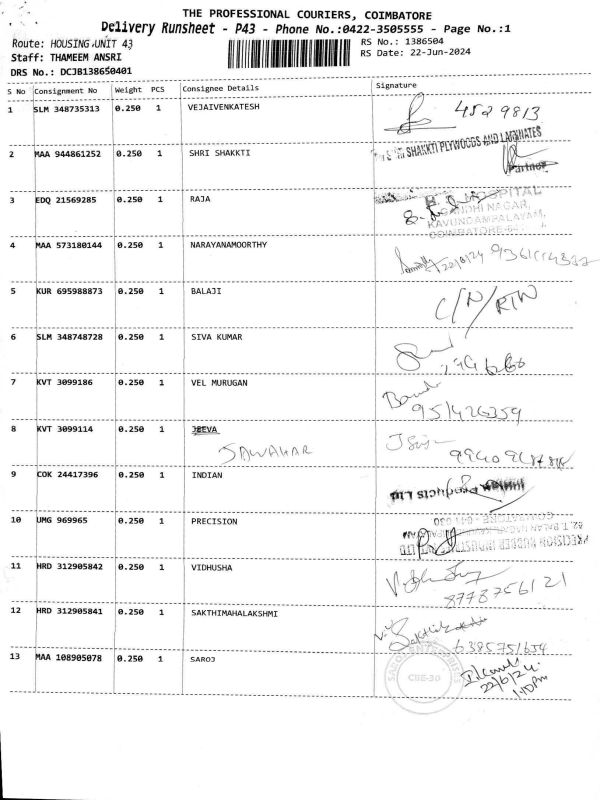 THE PROFESSIONAL COURIERS, COIMBATORE
Delivery Runsheet - P43 - Phone No.:0422-3505555 - Page No.:1
Route: HOUSING UNIT 43
RS No.: 1386504
Staff: THAMEEM ANSRI
RS Date: 22-Jun-2024
DRS No.: DCJB138650401
S No Consignment No Weight PCS Consignee Details Signature
1 SLM 348735313 0.250 1 VEJAIVENKATESH 4529813
2 MAA 944861252 0.250 1 SHRI SHAKKTI
SHAKKTI PLYWOODS AND LAMINATES
Partner
3 EDQ 21569285 0.250 1 RAJA
HOSPITAL
GANDHI NAGAR,
KAVUNDAMPALAYAM,
COIMBATORE
4 MAA 573180144 0.250 1 NARAYANAMOORTHY
5 KUR 695988873 0.250 1 BALAJI C/N/RTN
6 SLM 348748728 0.250 1 SIVA KUMAR
7 KVT 3099186 0.250 1 VEL MURUGAN
951426359
8 KVT 3099114 0.250 1 JEEVA
JAWAHAR
9 COK 24417396 0.250 1 INDIAN
Products Ltd
10 UMG 969965 0.250 1 PRECISION
PRECISION RUBBER INDUSTRIES
11 HRD 312905842 0.250 1 VIDHUSHA
8778756121
12 HRD 312905841 0.250 1 SAKTHIMAHALAKSHMI
6385751654
13 MAA 108905078 0.250 1 SAROJ
SAROJ ENTERPRISES
CBE-30
22/6/24
1.10 Pm